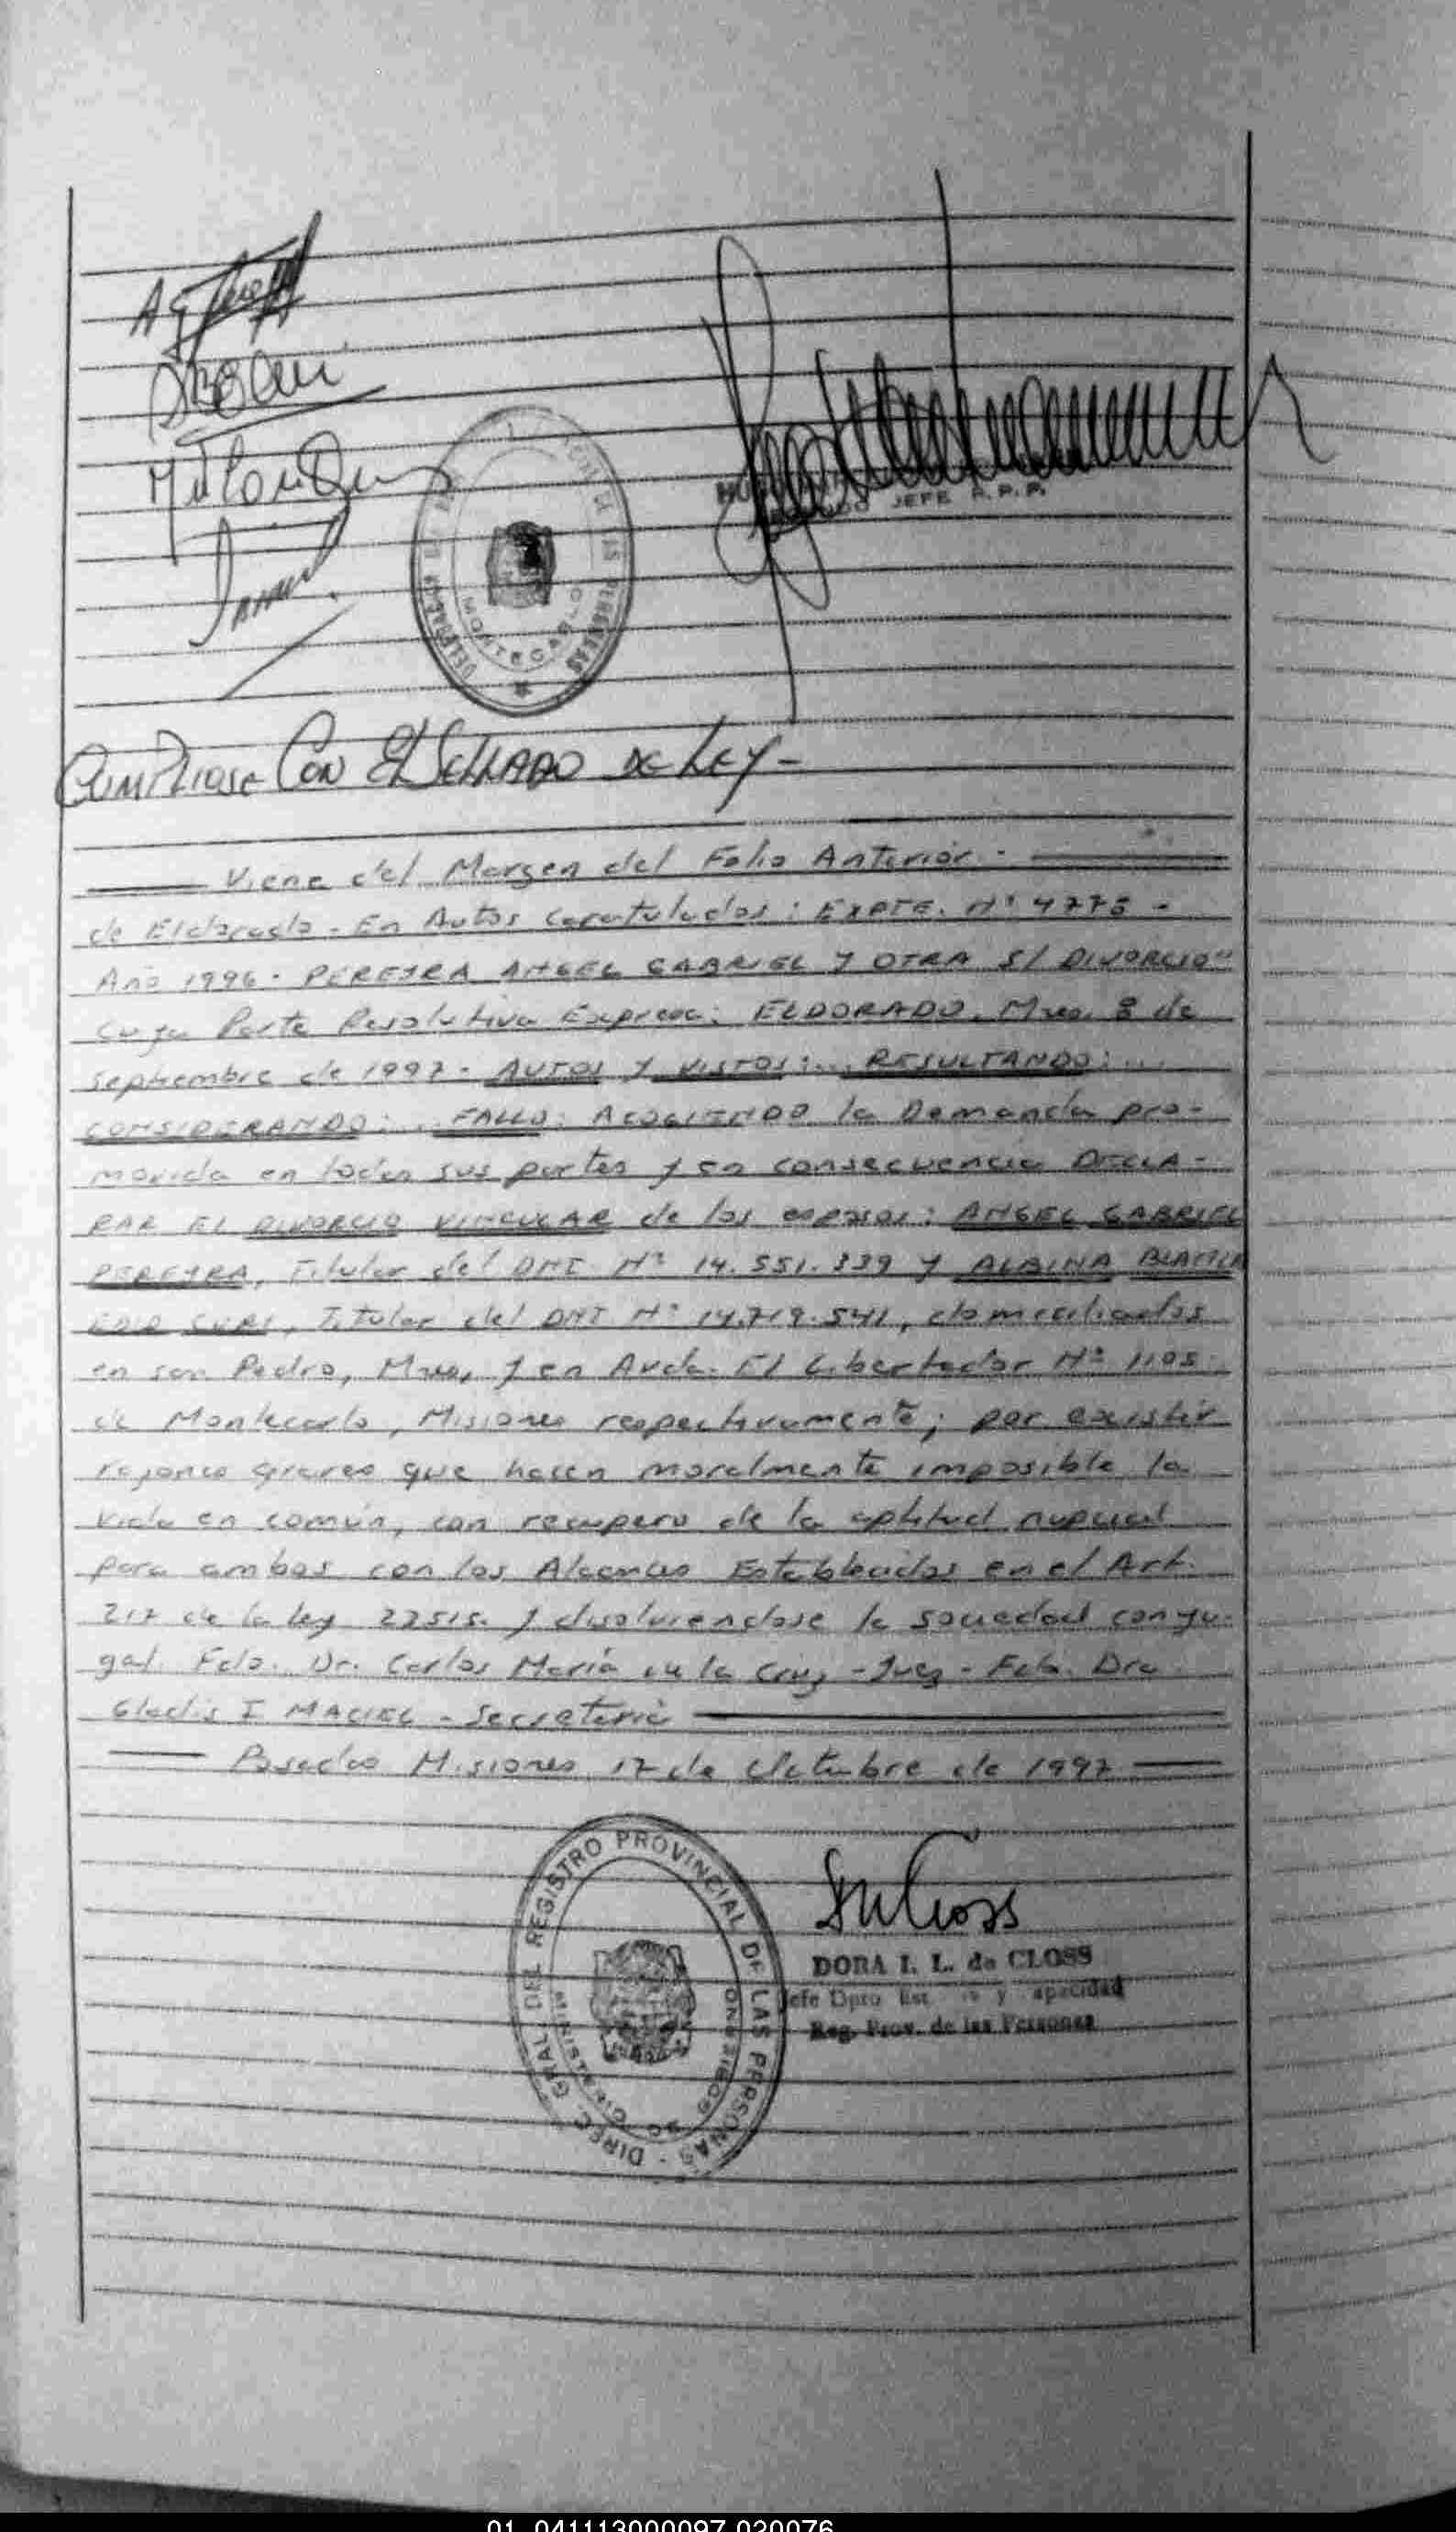 MONTECARLO
JEFE R.P.P.
Cumpliose Con El Sellado de Ley -
Viene del Margen del Folio Anterior. -
de Eldorado - En Autos Caratulados: EXPTE. Nº 4775 -
Año 1996 - PEREYRA ANGEL GABRIEL Y OTRA S/ DIVORCIO"
cuya Parte Resolutiva Expresa: ELDORADO, Mnes. 8 de
Septiembre de 1997 - AUTOS Y VISTOS:... RESULTANDO:...
CONSIDERANDO:... FALLO: ACOGIENDO la Demanda pro-
movida en todas sus partes y en consecuencia DECLA-
RAR El DIVORCIO VINCULAR de los esposos: ANGEL GABRIEL
PEREYRA, Titular del DNI Nº 14.551.339 y ALBINA BLANCA
Titular del DNI Nº 14.719.541, domiciliados
en San Pedro, Mnes, y en Avda. El Libertador Nº 1105
de Montecarlo, Misiones respectivamente; por existir
razones graves que hacen moralmente imposible la
vida en común, con recupero de la aptitud nupcial
para ambos con los Alcances Establecidos en el Art.
217 de la ley 23515. y disolviendose la sociedad conyu-
gal. Fdo. Dr. Carlos María de la Cruz - Juez - Fdo. Dra
Gladis I MACIEL - Secretaria
Posadas Misiones 17 de Octubre de 1997
DIREC. GRAL. DEL REGISTRO PROVINCIAL DE LAS PERSONAS
DORA I. L. de CLOSS
Jefe Dpto Est y apacidad
Reg. Prov. de las Personas
01 041113000097 020076